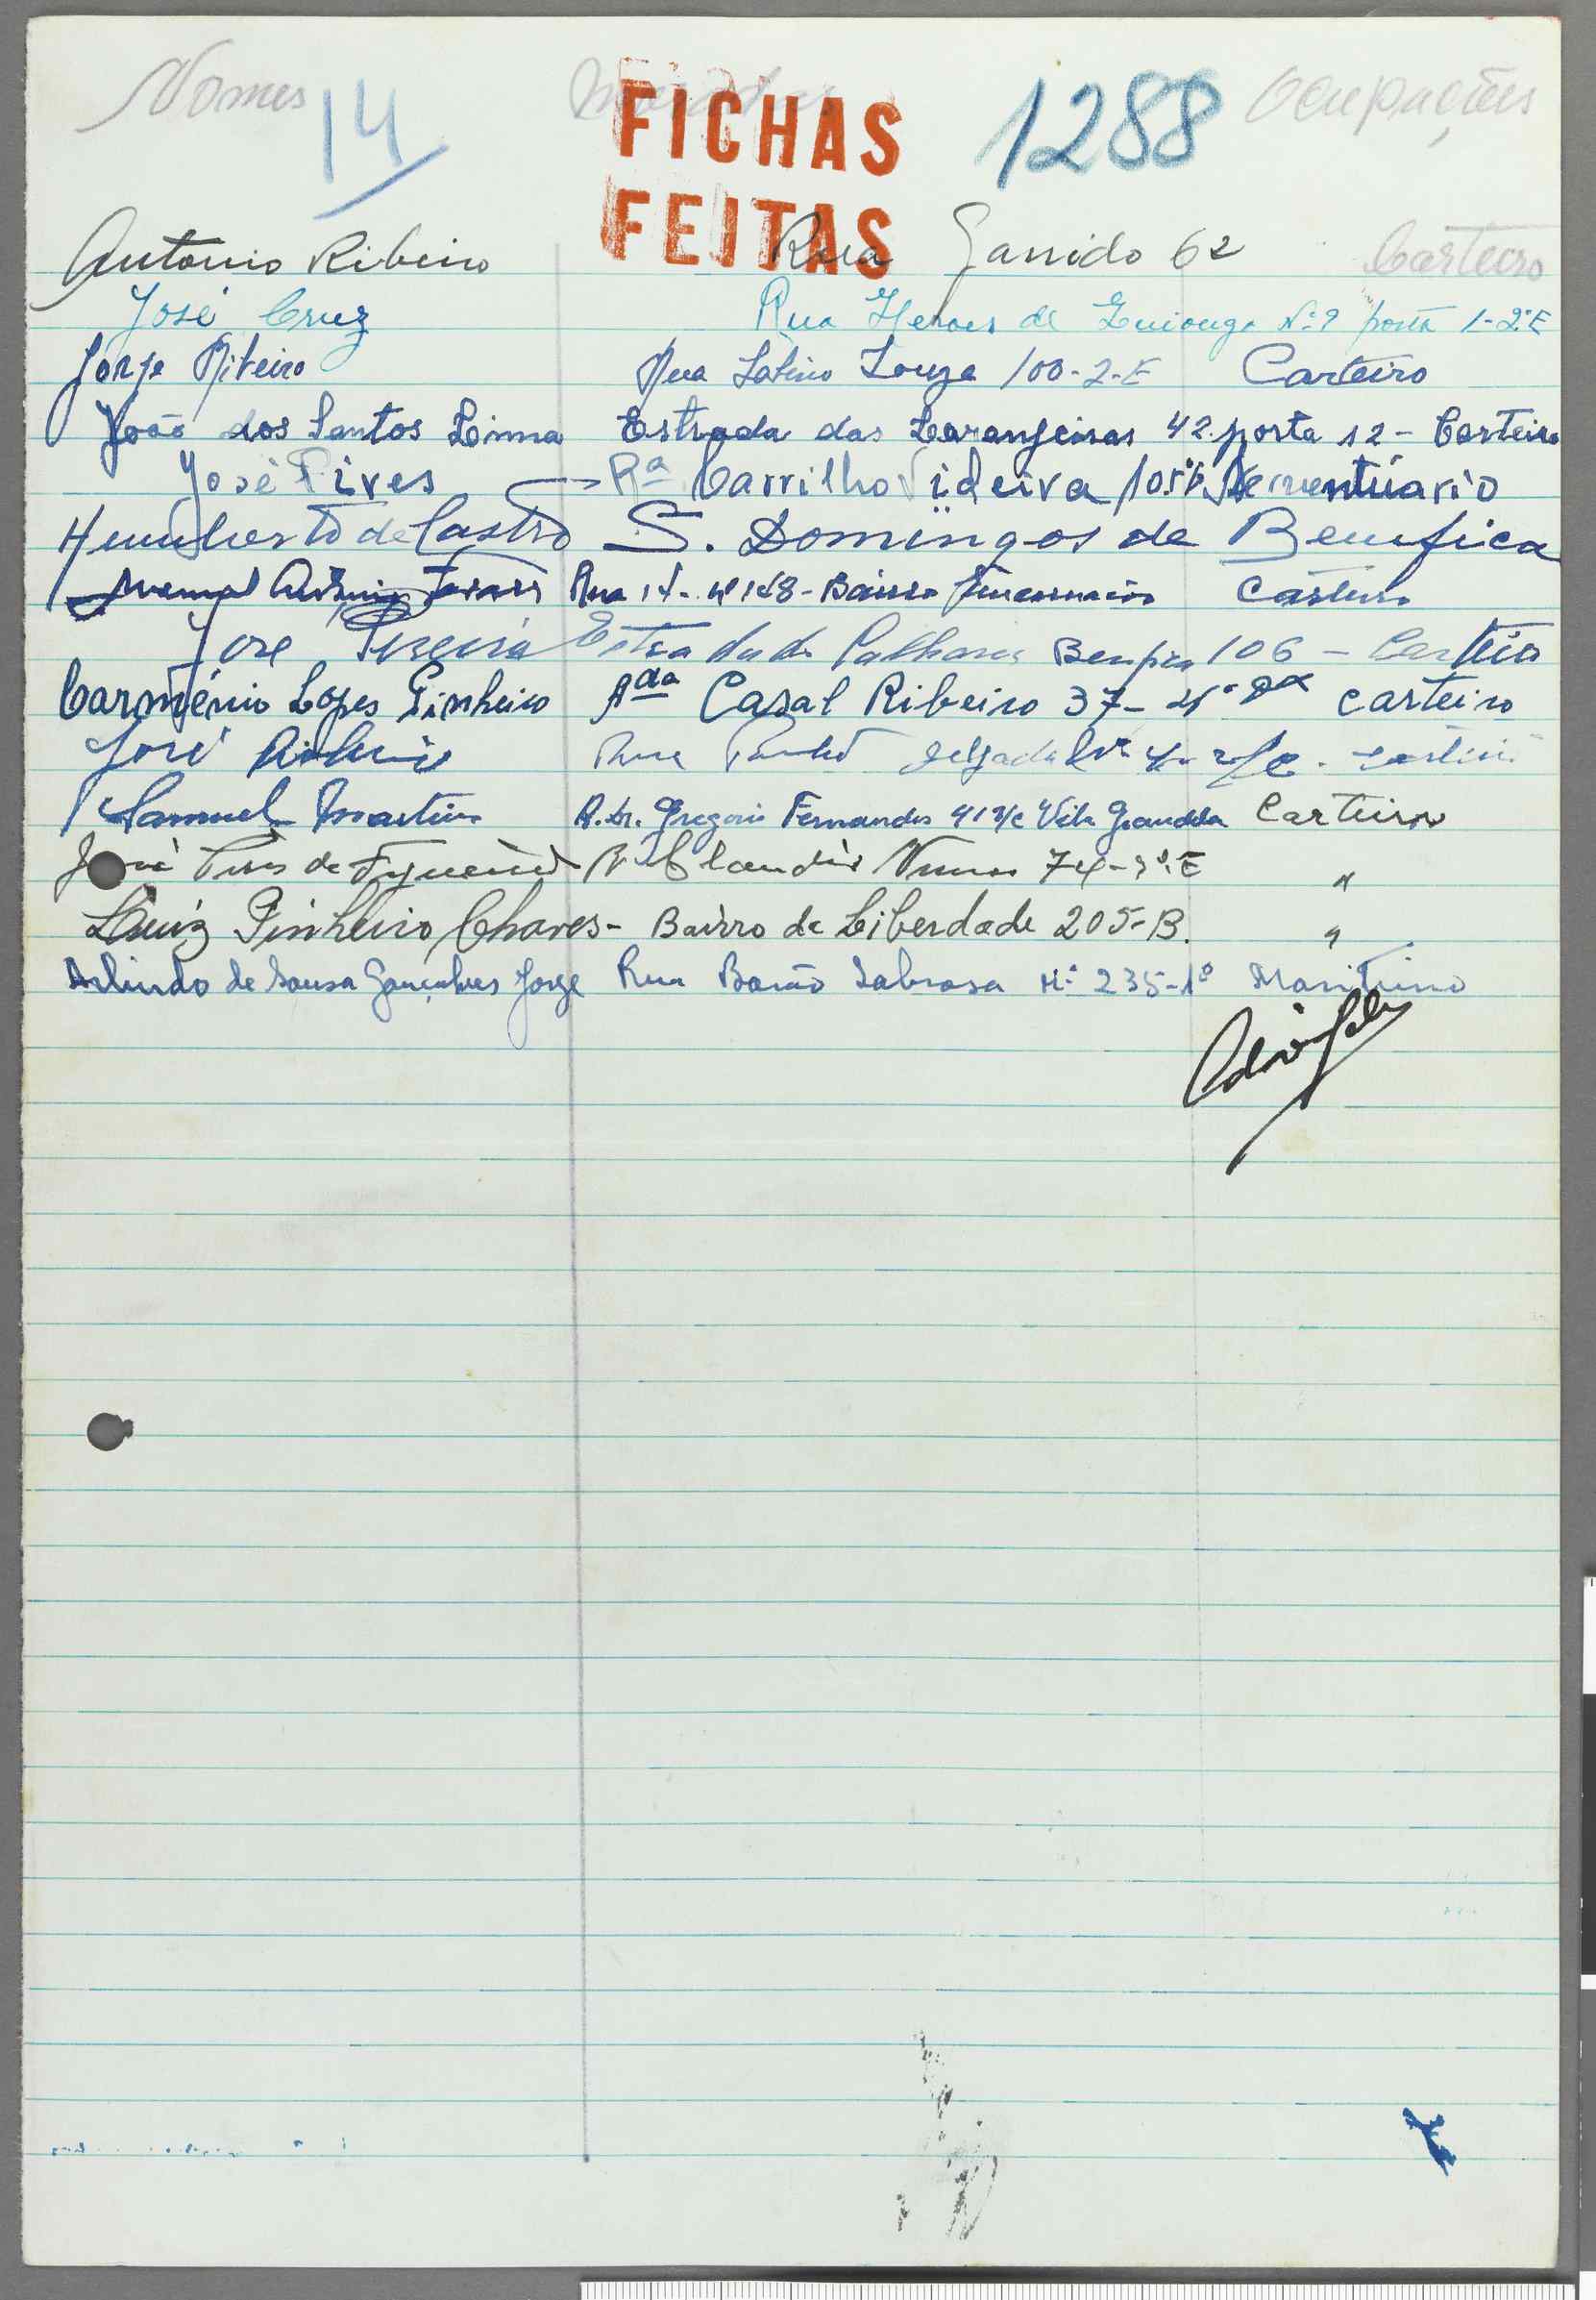 Nomes 14 Moradas 1288 Ocupações
FICHAS
FEITAS
Antonio Ribeiro Rua Garrido 62 Carteiro
José Cruz Rua Heroes de Quionga Nº 9 porta 1-2º E
Jorge Ribeiro Rua Latino 100-2-E Carteiro
João dos Santos Lima Estrada das Laranjeiras 42 porta 12 - Carteiro
José Pires Rª Carrilho Videira 10
Humberto de Castro S. Domingos de Bemfica
Manuel Antonio Tavares Rua 17 - nº 148 - Bairro Encarnação Carteiro
José Pereira Estrada da Benfica 106 - Carteiro
Carménio Lopes Pinheiro Aᵈᵃ Casal Ribeiro 37 - Carteiro
José Rua Delgado r/c - Carteiro
Samuel Martins R. Dr. Gregorio Fernandes 41 r/c Vila Grandela Carteiro
José Pires de R. Claudio Nunes 74-3º.E "
Luiz Pinheiro Chaves - Bairro da Liberdade 205-B. "
Arlindo de Sousa Gonçalves Jorge Rua Barão Sabrosa Nº 235-1º Maritimo